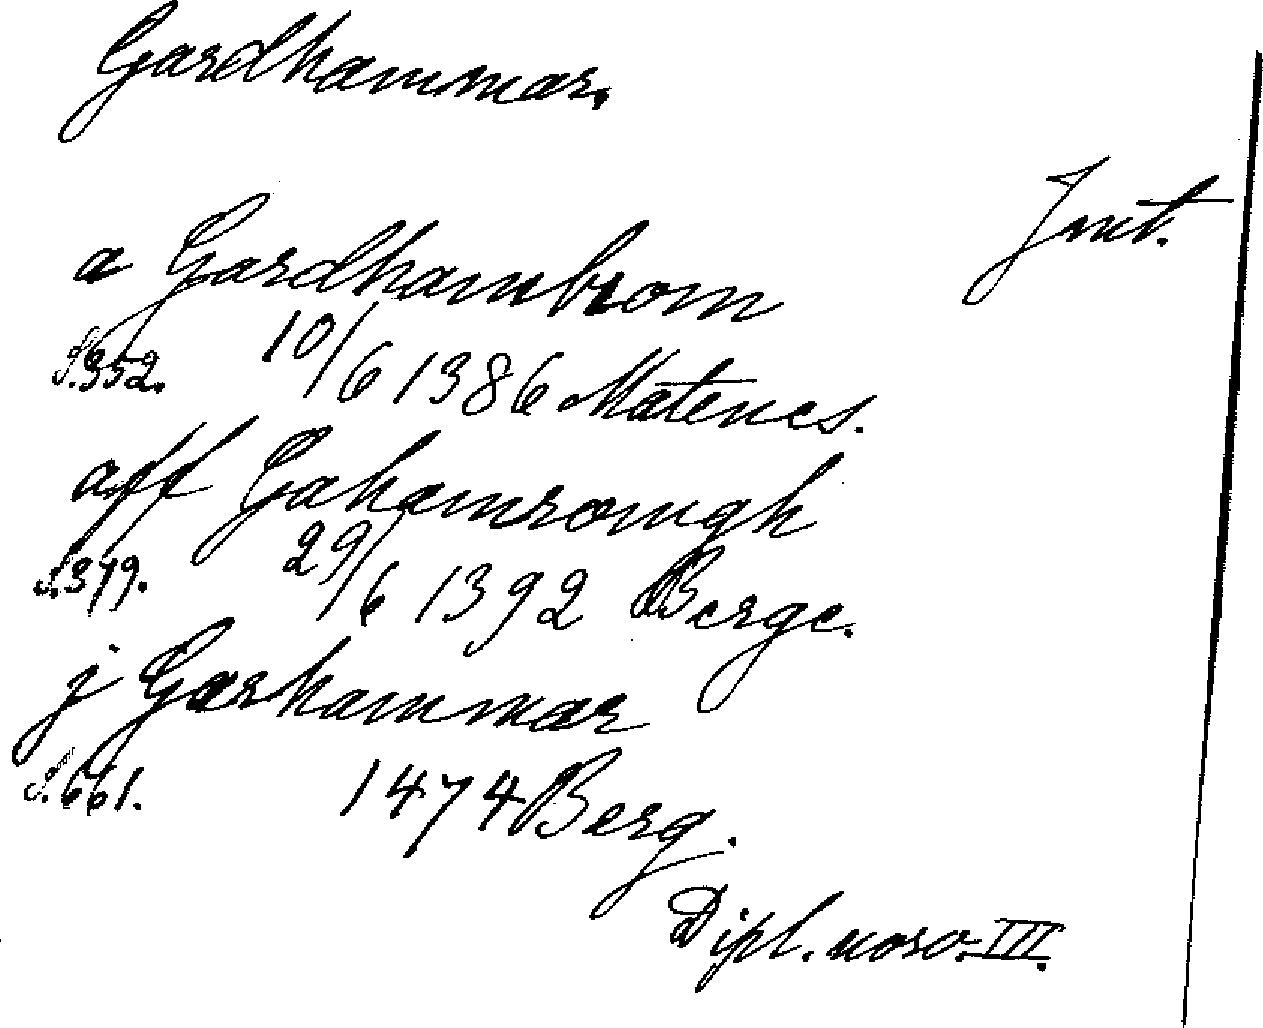 Gardhammar.
Jmt.
a Gardhambrom
S. 352. 10/6 1386 Matenes.
aff Gahamromgh
S. 379. 29/6 1392 Berge.
j Garhammar
S. 661. 1474 Berg.
Dipl. norv. III.